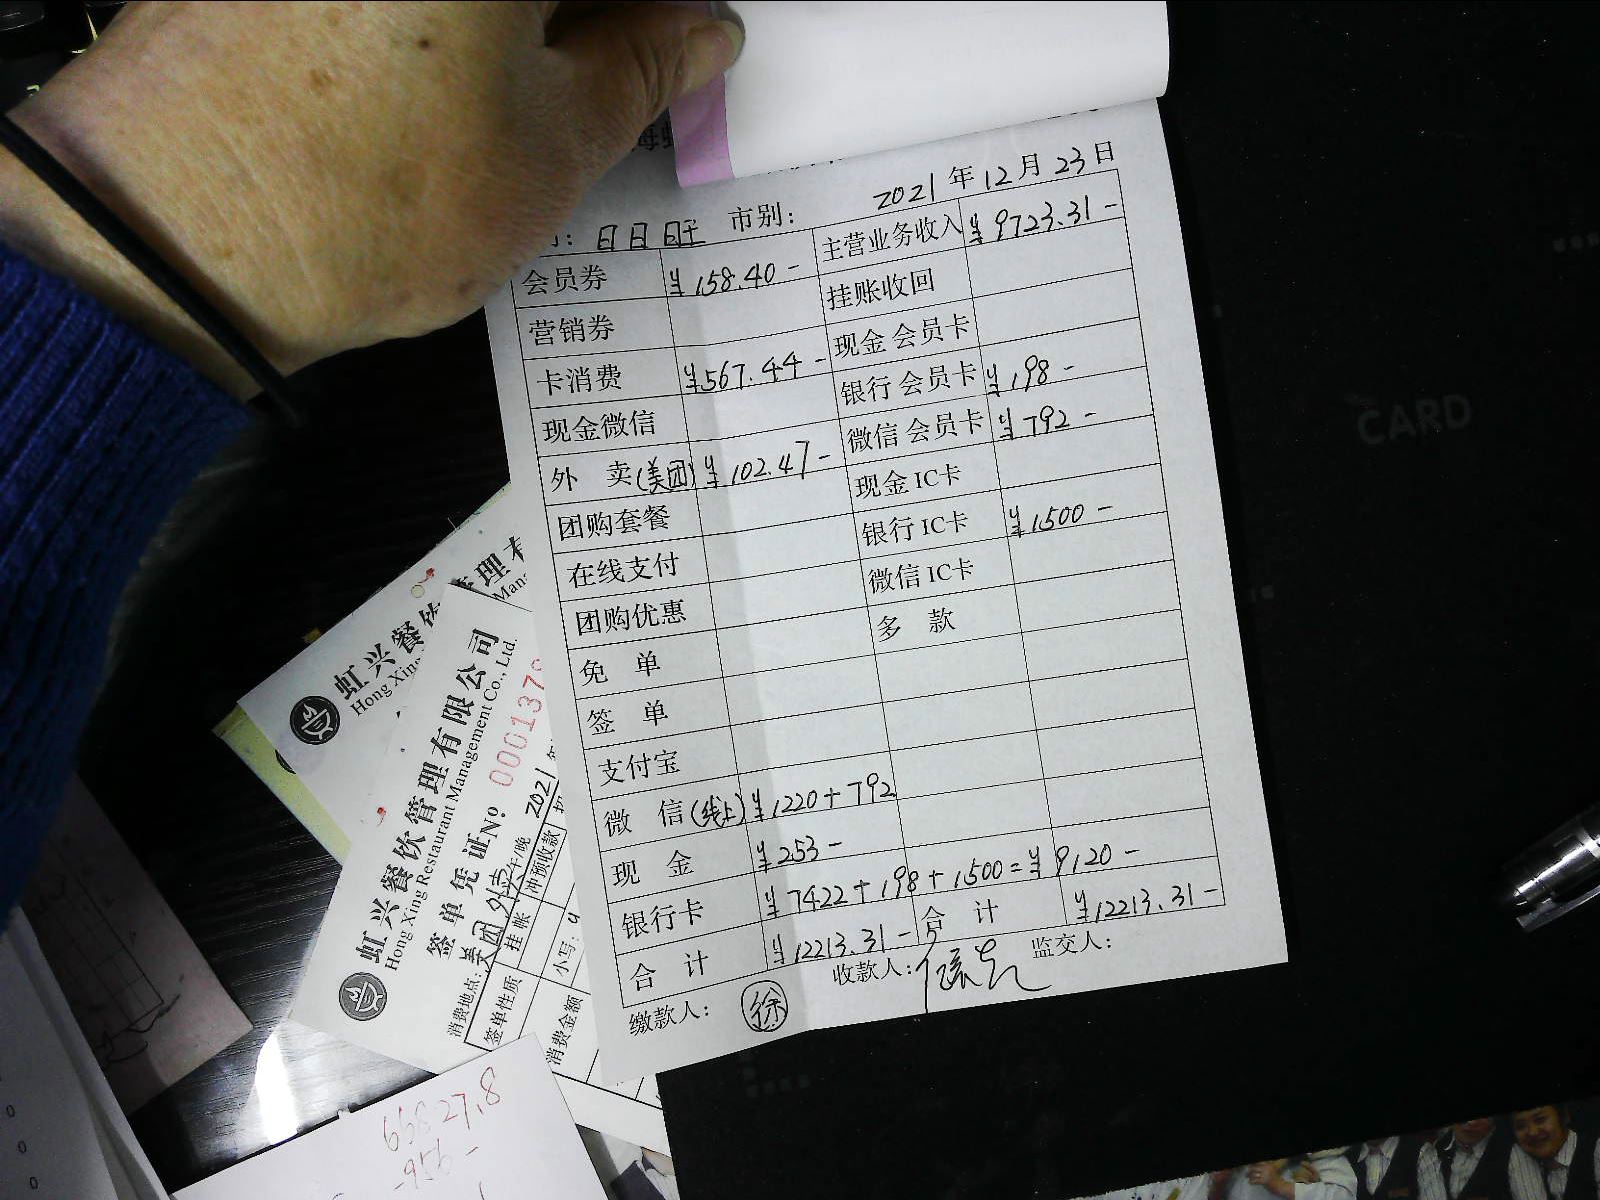 2021年12月23日
日日旺 市别：
会员券 ¥158.40- 主营业务收入 ¥9723.31-
营销券 挂账收回
卡消费 ¥567.44- 现金会员卡
现金微信 银行会员卡 ¥198-
外 卖(美团) ¥102.47- 微信会员卡 ¥792-
团购套餐 现金IC卡
在线支付 银行IC卡 ¥1500-
团购优惠 微信IC卡
免 单 多 款
签 单
支付宝
微 信(线上) ¥1220+792
现 金 ¥253-
银行卡 ¥7422+198+1500=¥9120-
合 计 ¥12213.31- 合 计 ¥12213.31-
缴款人： 徐 收款人： 监交人：
虹兴餐饮管理有
Hong Xing
虹兴餐饮管理有限公司
Hong Xing Restaurant Management Co., Ltd.
签单凭证 No 0001378
2021
消费地点：美团外卖 午/晚
签单性质 挂帐 冲预收款
消费金额 小写：¥
CARD
-956-